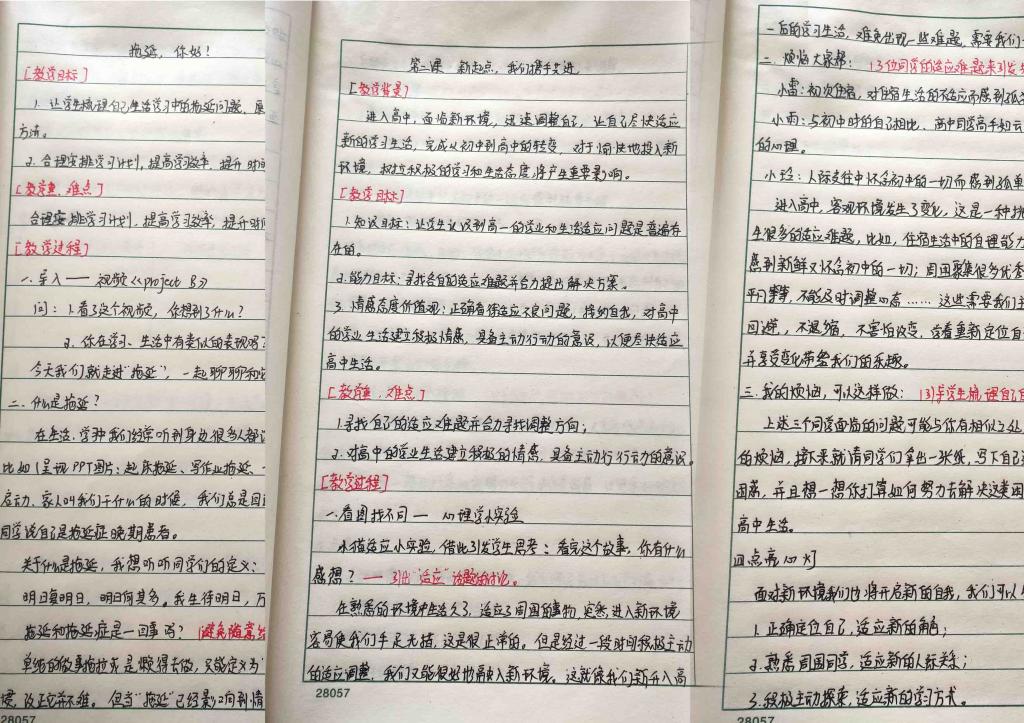 拖延，你好！
[教学目标]
1. 让学生梳理自己生活学习中的拖延问题、
方法。
2. 合理安排学习计划，提高学习效率、提升时间
[教学重、难点]
合理安排学习计划，提高学习效率、提升时间
[教学过程]
一. 导入 —— 视频《project B》
问：1.看了这个视频，你想到了什么？
2. 你在学习、生活中有类似的表现吗？
今天我们就走进"拖延"，一起聊聊和
二. 什么是拖延？
在生活、学习中我们经常听到身边很多人都
比如（呈现PPT图片：起床拖延、写作业拖延、
应动、家人叫我们干什么的时候，我们总是回
同学说自己是拖延症晚期患者。
关于什么是拖延，我想听听同学们的定义：
明日复明日，明日何其多。我生待明日，万
拖延和拖延症是一回事吗？（避免随意
单纯的做事拖拉或是懒得去做，只能定义为
惯，改正它并不难。但当"拖延"已经影响到情
28057
第二课 新起点，我们携手共进
[教学背景]
进入高中，面临新环境，迅速调整自己，让自己尽快适应
新的学习生活，完成从初中到高中的转变，对于愉快地投入新
环境，树立积极的学习和生活态度将产生重要影响。
[教学目标]
1.知识目标：让学生认识到高一的学业和生活适应问题是普遍存
在的。
2.能力目标：寻找各自的适应难题并合力提出解决方案。
3. 情感态度价值观：正确看待适应不良问题，接纳自我，对高中
的学业生活建立积极情感，具备主动行动的意识，以便尽快适应
高中生活。
[教学重、难点]
1.寻找自己的适应难题并合力寻找调整方向；
2. 对高中的学业生活建立积极的情感，具备主动行行动的意识。
[教学过程]
一.看图找不同 — 心理学小实验
小猫适应小实验，借此引发学生思考：看完这个故事，你有什么
感想？ — 引出"适应"话题的讨论。
在熟悉的环境中生活久了，适应了周围的事物，突然进入新环境
容易使我们手足无措，这是很正常的。但是经过一段时间积极主动
的适应调整，我们又能很好地融入新环境。这就像我们新升入高
28057
一后的学习生活，难免出现一些难题，需要我们
二. 烦恼大家帮：（3位同学的适应难题来引发
小雷：初次住宿，对住宿生活的不适应而感到孤
小雨：与初中时的自己相比，高中同学高手如云
的心理。
小玲：人际交往中怀念初中的一切而感到孤单
进入高中，客观环境发生了变化，这是一种挑
生很多的适应难题，比如，住宿生活中的自理能力
感到新鲜又怀念初中的一切；周围聚集很多优秀
平凡等等，不能及时调整心态……这些需要我们
回避，不退缩，不害怕改变，学着重新定位自
并享受变化带给我们的乐趣。
三. 我的烦恼，可以这样做：（引导学生梳理自己
上述三个同学面临的问题可能与你有相似之处
的烦恼，接下来就请同学们拿出一张纸，写下自己
困惑，并且想一想你打算如何努力去解决这类困
高中生活。
四点亮心灯
面对新环境我们也将开启新的自我，我们可以
1. 正确定位自己，适应新的角色；
2. 熟悉周围同学，适应新的人际关系；
3.积极主动探索，适应新的学习方式。
28057